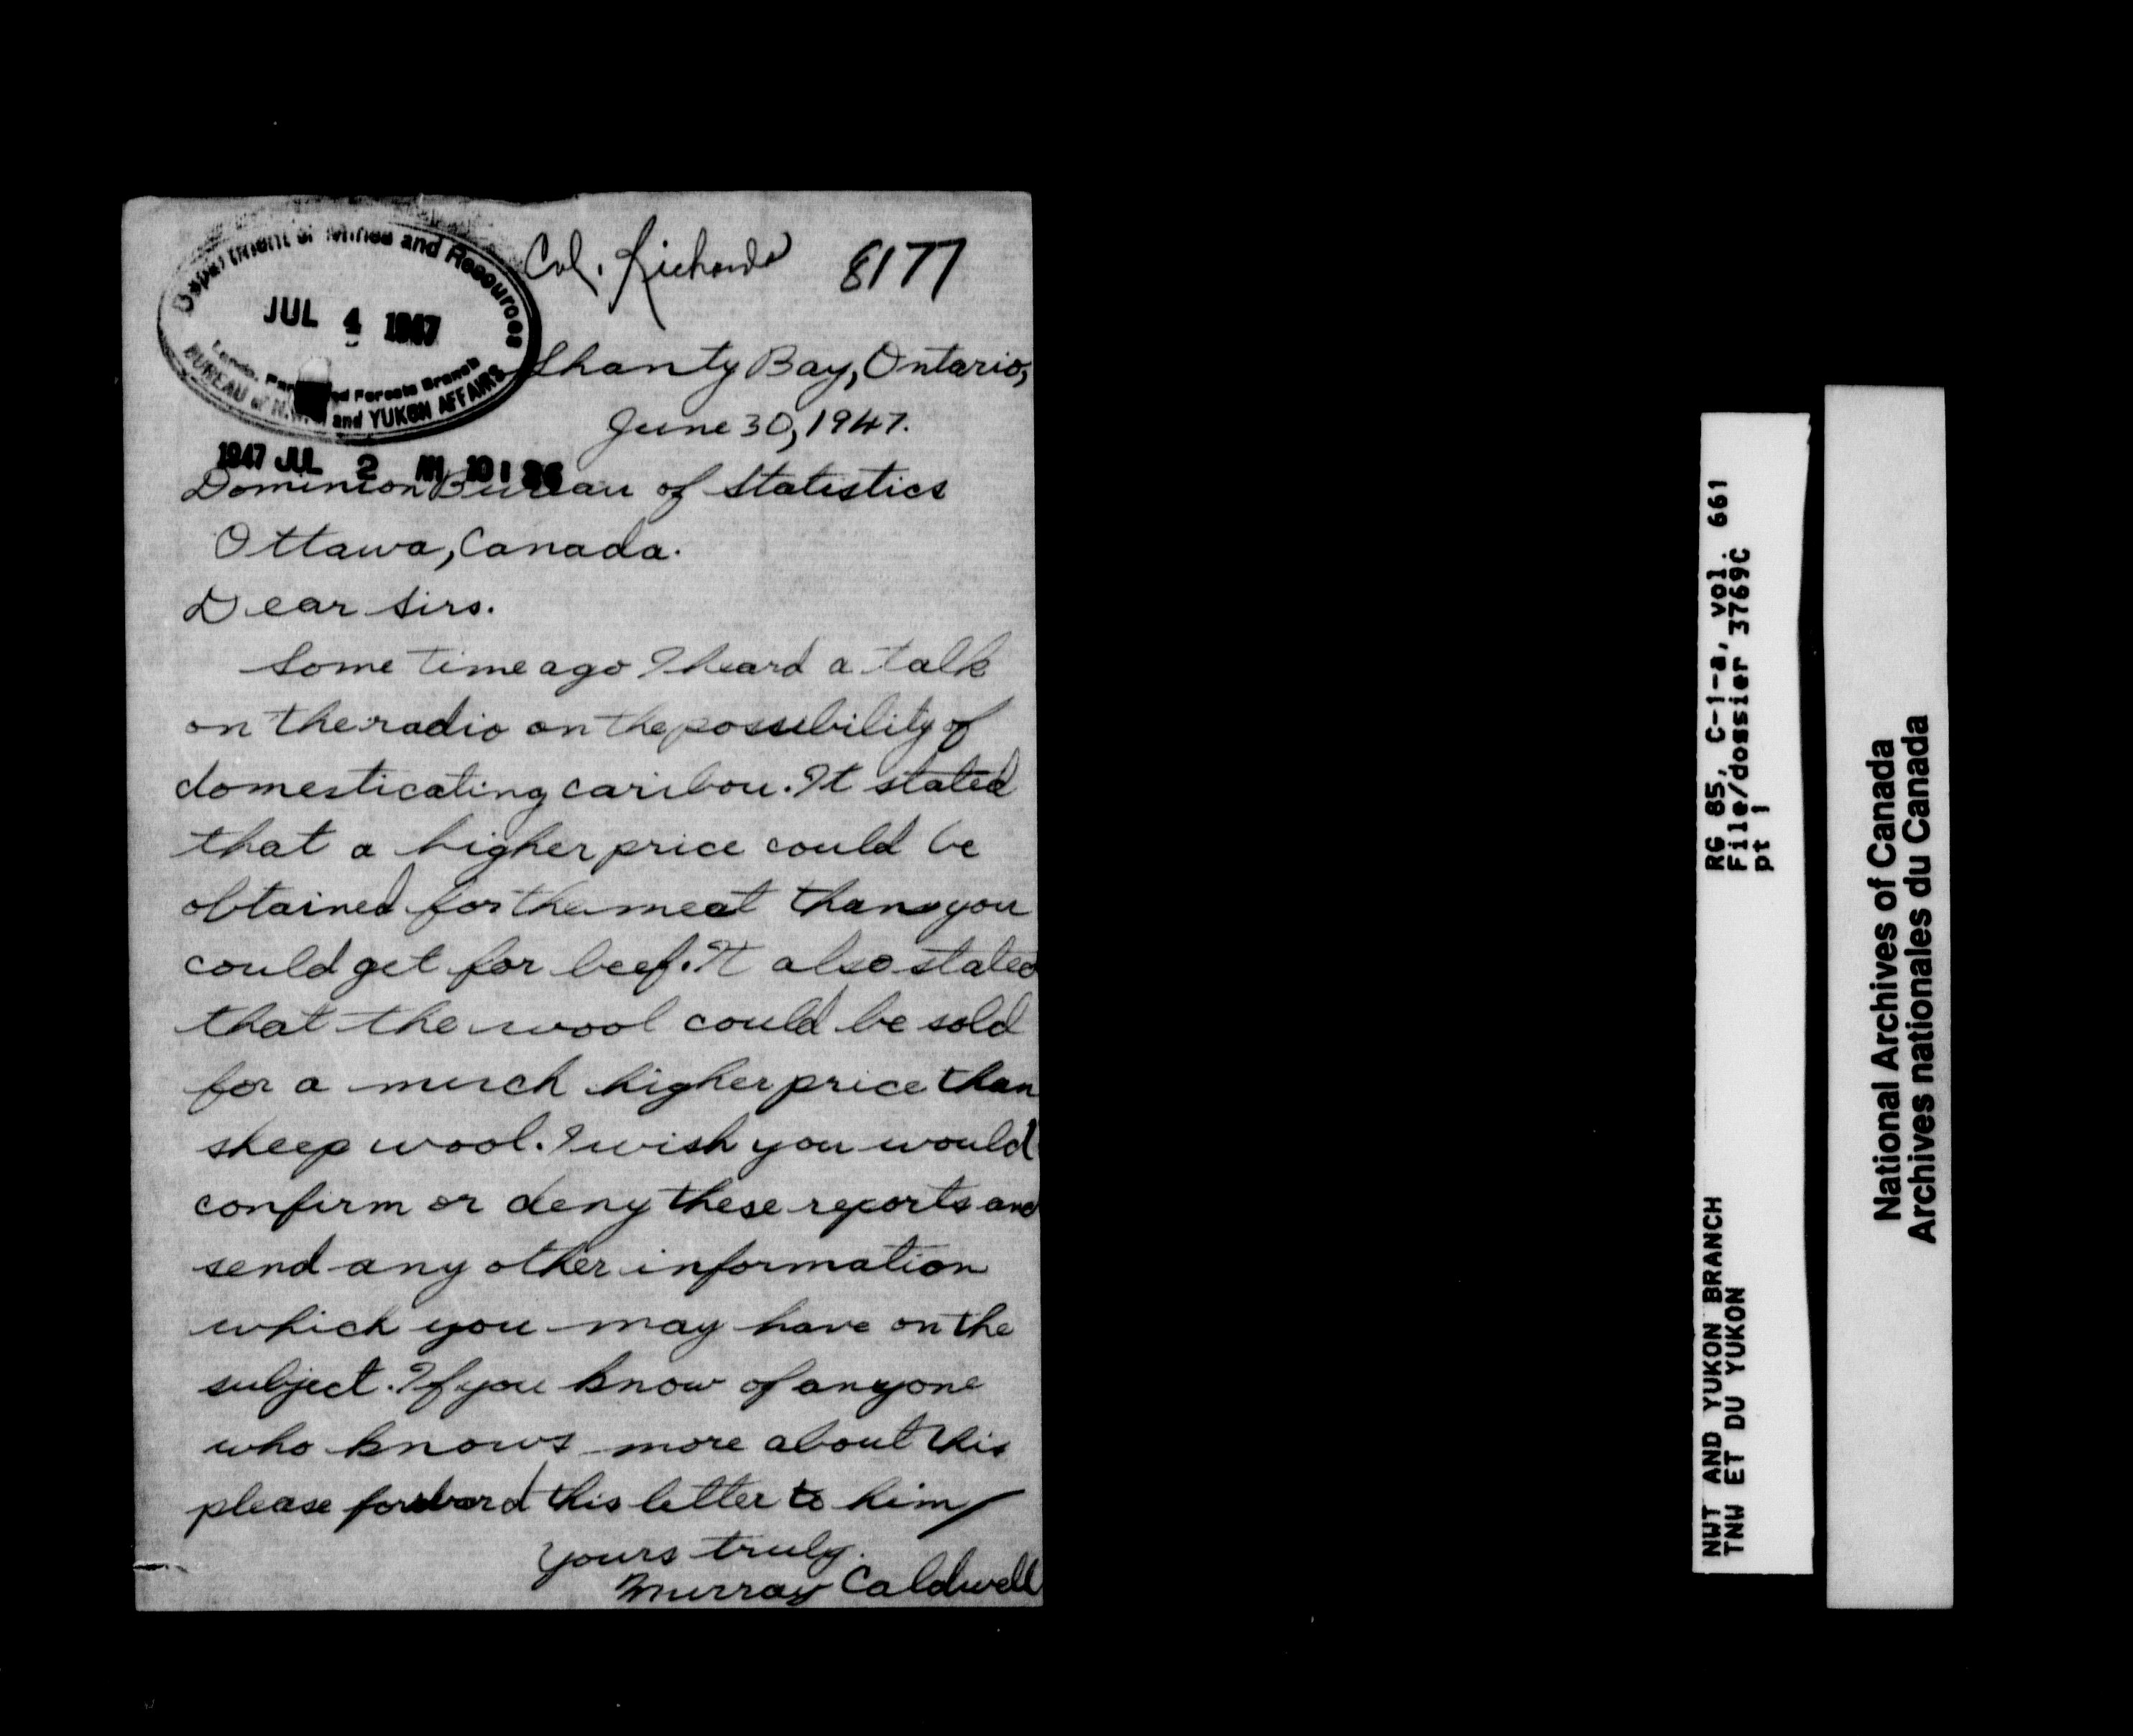 Department of Mines and Resources
JUL 4 1947
Lands, Parks and Forests Branch
BUREAU of N.W.T. and YUKON AFFAIRS
Col. Richards 8177
Shanty Bay, Ontario,
June 30, 1947.
1947 JUL 2 AM 10:
Dominion Bureau of Statistics
Ottawa, Canada.
Dear Sirs.
Some time ago I heard a talk
on the radio on the possibility of
domesticating caribou. It stated
that a higher price could be
obtained for the meat than you
could get for beef. It also stated
that the wool could be sold
for a much higher price than
sheep wool. I wish you would
confirm or deny these reports and
send any other information
which you may have on the
subject. If you know of anyone
who knows more about this
please forward this letter to him
Yours truly.
Murray Caldwell
RG 85, C-1-a, vol. 661
File/dossier 3769C
pt 1
NWT AND YUKON BRANCH
TNW ET DU YUKON
National Archives of Canada
Archives nationales du Canada